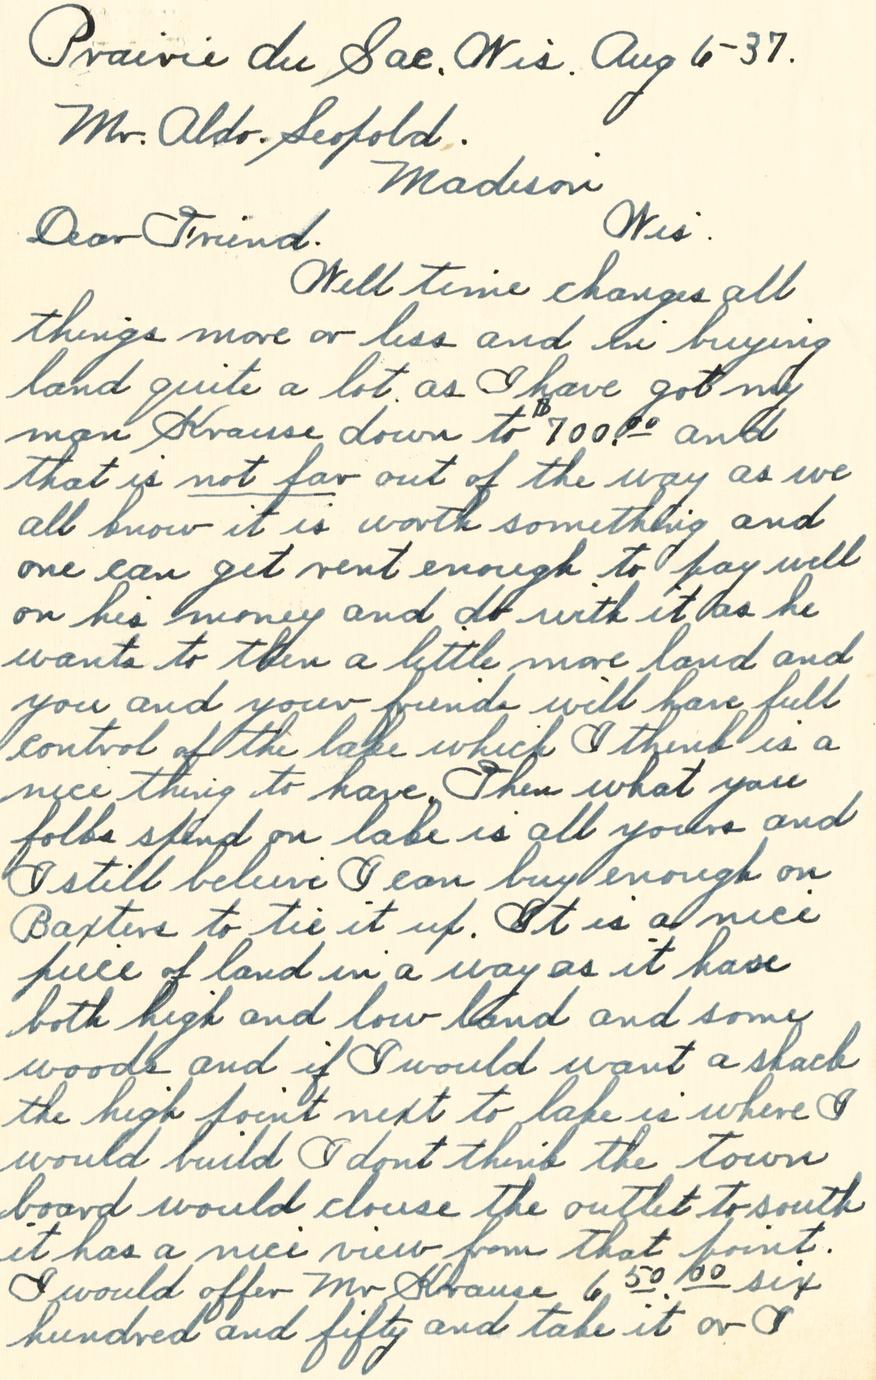 Prairie du Sac. Wis. Aug 6-37.
Mr. Aldo. Leopold.
Madison
Dear Friend. Wis.
Well time changes all
things more or less and in buying
land quite a lot. as I have got my
man Krause down to $700.00 and
that is not far out of the way as we
all know it is worth something and
one can get rent enough to pay well
on his money and do with it as he
wants to then a little more land and
you and your friends will have full
control of the lake which I think is a
nice thing to have. Then what you
folks spend on lake is all yours and
I still beleive I can buy enough on
Baxters to tie it up. It is a nice
piece of land in a way as it hase
both high and low land and some
woods and if I would want a shack
the high point next to lake is where I
would build I dont think the town
board would clouse the outlet to south
it has a nice view from that point.
I would offer Mr Krause 650.00 six
hundred and fifty and take it or I